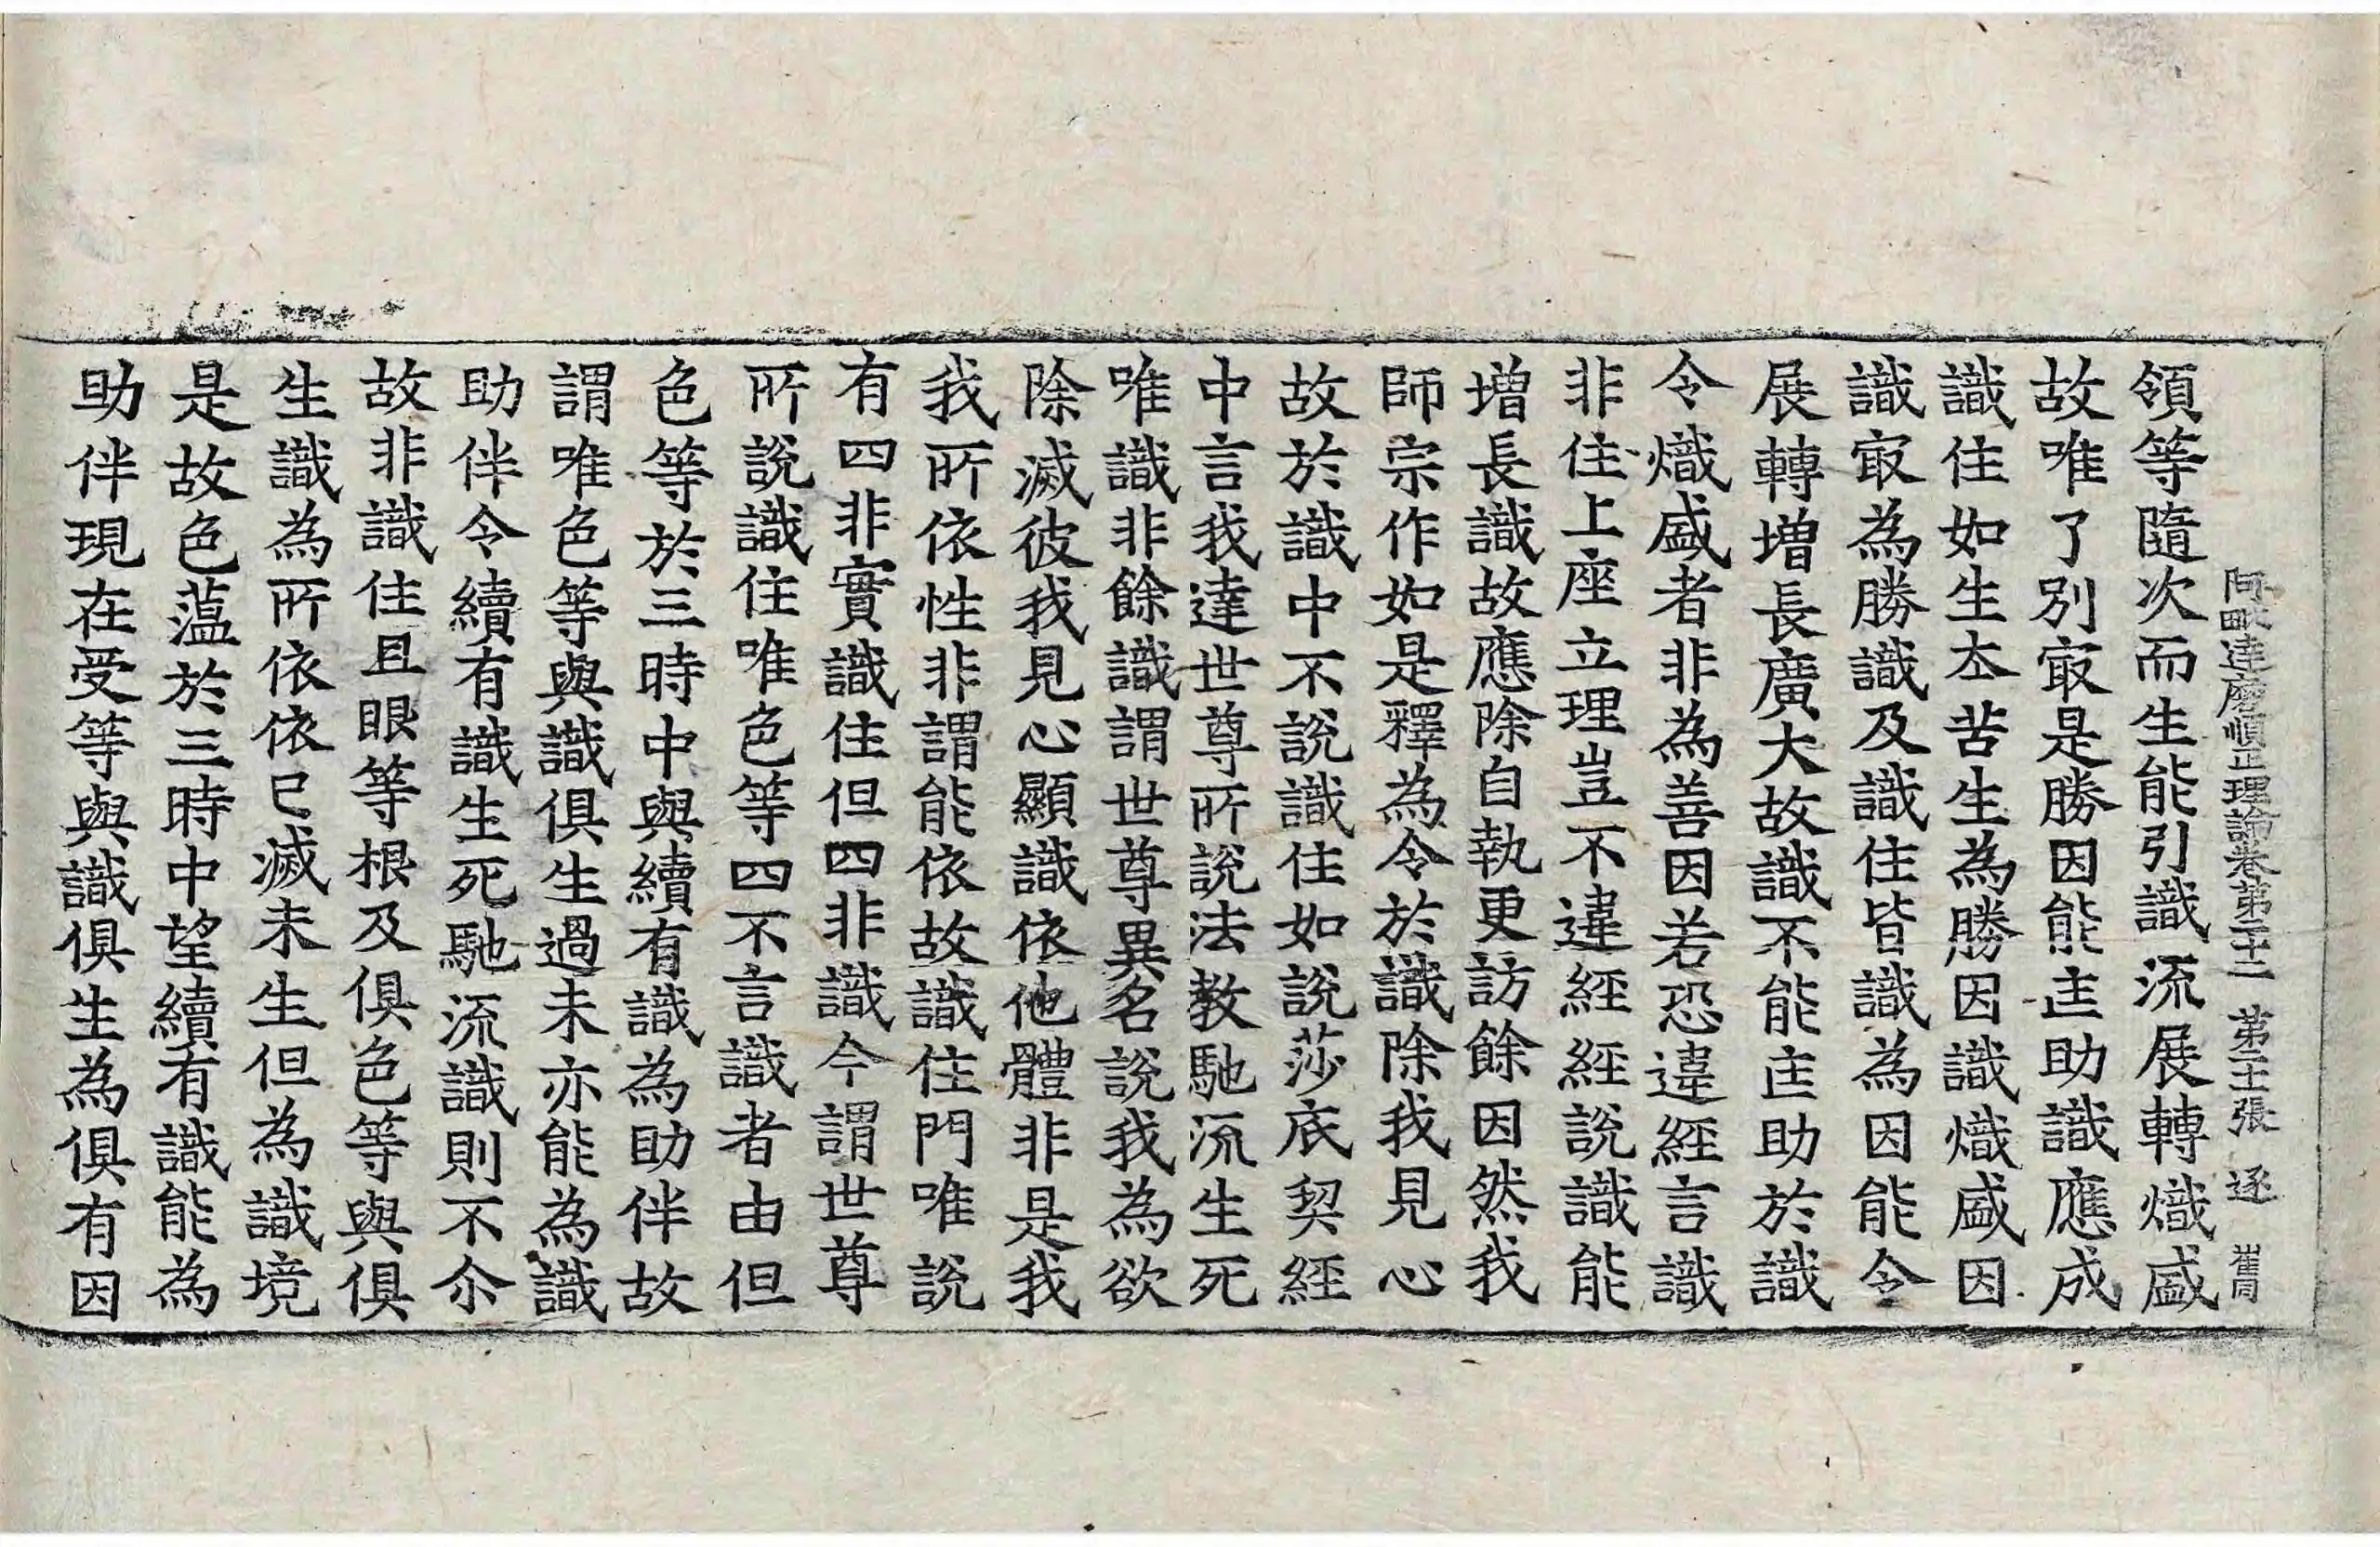 阿毗達磨順正理論卷第二十二 第二十張 逐 崔同
領等隨次而生能引識流展轉熾盛
故唯了別㝡是勝因能㐀助識應成
識住如生夲苦生為勝因識熾盛因
識㝡為勝識及識住皆識為因能令
展轉增長廣大故識不能㐀助於識
令熾盛者非為善因若恐違經言識
非住上座立理豈不違經經說識能
增長識故應除自執更訪餘因然我
師宗作如是釋為令於識除我見心
故於識中不說識住如說莎底契經
中言我達世尊所說法教馳流生死
唯識非餘識謂世尊異名說我為欲
除滅彼我見心顯識依他體非是我
我所依性非謂能依故識住門唯說
有四非實識住但四非識今謂世尊
所說識住唯色等四不言識者由但
色等於三時中與續有識為助伴故
謂唯色等與識俱生過未亦能為識
助伴令續有識生死馳流識則不尒
故非識住且眼等根及俱色等與俱
生識為所依依已滅未生但為識境
是故色蕰於三時中望續有識能為
助伴現在受等與識俱生為俱有因